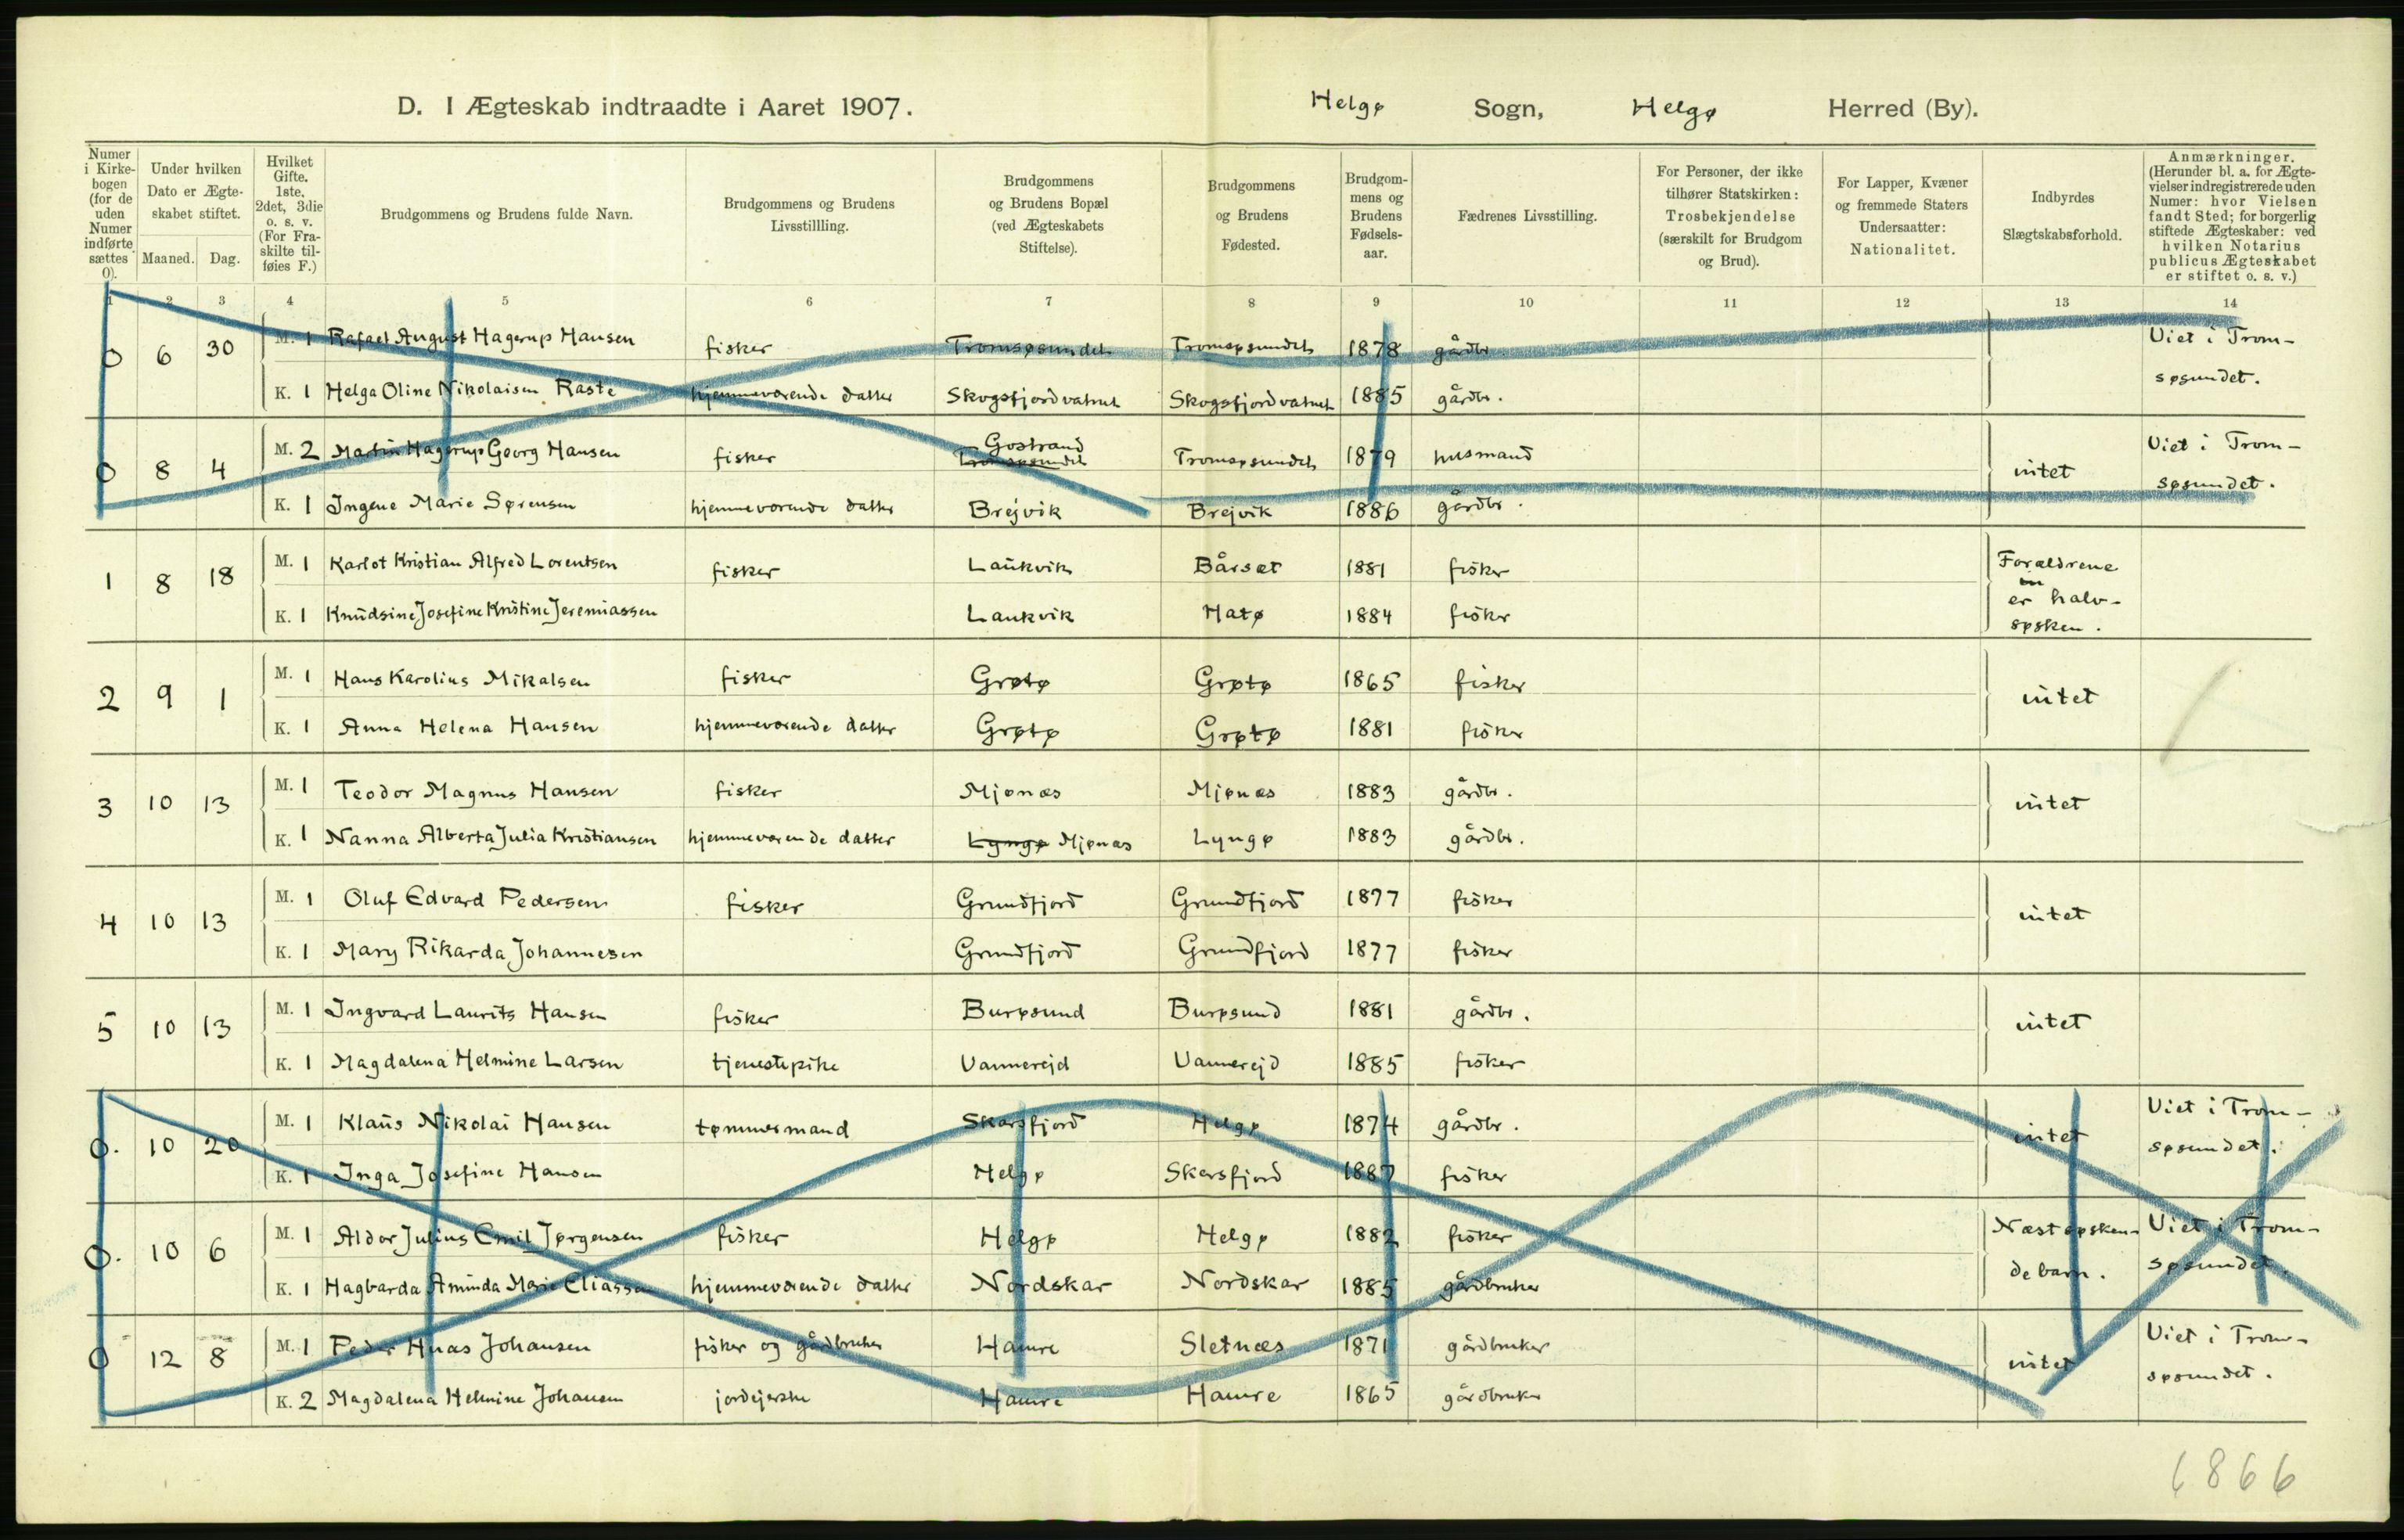 D. I Ægteskab indtraadte i Aaret 1907. Helgø Sogn, Helgø Herred (By).
Numer i Kirkebogen (for de uden Numer indførte sættes 0).
Under hvilken Dato er Ægteskabet stiftet.
Maaned. Dag.
Hvilket Gifte. 1ste, 2det, 3die o. s. v. (For Fraskilte tilføies F.)
Brudgommens og Brudens fulde Navn.
Brudgommens og Brudens Livsstillling.
Brudgommens og Brudens Bopæl (ved Ægteskabets Stiftelse).
Brudgommens og Brudens Fødested.
Brudgommens og Brudens Fødselsaar.
Fædrenes Livsstilling.
For Personer, der ikke tilhører Statskirken: Trosbekjendelse (særskilt for Brudgom og Brud).
For Lapper, Kvæner og fremmede Staters Undersaatter: Nationalitet.
Indbyrdes Slægtskabsforhold.
Anmærkninger. (Herunder bl. a. for Ægtevielser indregistrerede uden Numer: hvor Vielsen fandt Sted; for borgerlig stiftede Ægteskaber: ved hvilken Notarius publicus Ægteskabet er stiftet o. s. v.)
1 2 3 4 5 6 7 8 9 10 11 12 13 14
0 6 30 M. 1 Rafael August Hagerup Hansen fisker Tromsøsundet Tromsøsundet 1878 gårdbr Viet i Trom-
K. 1 Helga Oline Nikolaisen Raste hjemmeværende datter Skogsfjordvatnet Skogsfjordvatnet 1885 gårdbr. søsundet.
0 8 4 M. 2 Martin Hagerup Georg Hansen fisker Gostrand Tromsøsundet Tromsøsundet 1879 husmand intet Viet i Trom-
K. 1 Ingene Marie Sørensen hjemmeværende datter Brejvik Brejvik 1886 gårdbr. søsundet.
1 8 18 M. 1 Karlot Kristian Alfred Lorentsen fisker Laukvik Bårset 1881 fisker Forældrene
K. 1 Knudsine Josefine Kristine Jeremiassen Laukvik Hatø 1884 fisker er halv-
søsken.
2 9 1 M. 1 Hans Karolius Mikalsen fisker Grøtø Grøtø 1865 fisker intet
K. 1 Anna Helena Hansen hjemmeværende datter Grøtø Grøtø 1881 fisker
3 10 13 M. 1 Teodor Magnus Hansen fisker Mjønæs Mjønæs 1883 gårdbr. intet
K. 1 Nanna Alberta Julia Kristiansen hjemmeværende datter Lyngø Mjønæs Lyngø 1883 gårdbr.
4 10 13 M. 1 Oluf Edvard Pedersen fisker Grundfjord Grundfjord 1877 fisker intet
K. 1 Mary Rikarda Johannesen Grundfjord Grundfjord 1877 fisker
5 10 13 M. 1 Ingvard Laurits Hansen fisker Burøsund Burøsund 1881 gårdbr. intet
K. 1 Magdalena Helmine Larsen tjenestepike Vannerejd Vannerejd 1885 fisker
0. 10 20 M. 1 Klaus Nikolai Hansen tømmermand Skarsfjord Helgø 1874 gårdbr. intet Viet i Trom-
K. 1 Inga Josefine Hansen Helgø Skarsfjord 1887 fisker søsundet.
0. 10 6 M. 1 Aldor Julius Emil Jørgensen fisker Helgø Helgø 1882 fisker Næstsøsken- Viet i Trom-
K. 1 Hagbarda Aminda Marie Eliassen hjemmeværende datter Nordskar Nordskar 1885 gårdbruker de barn. søsundet.
0 12 8 M. 1 Peder Johansen fisker og gårdbruker Hamre Sletnæs 1871 gårdbruker intet Viet i Trom-
K. 2 Magdalena Helmine Johansen jordejerske Hamre Hamre 1865 gårdbruker søsundet.
1866